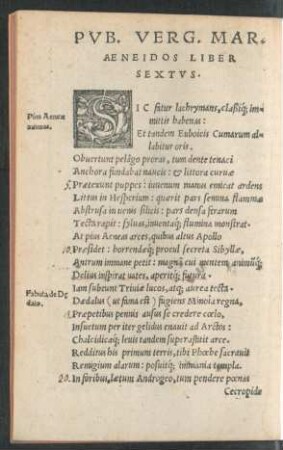 PVB. VERG. MAR.
AENEIDOS LIBER
SEXTVS.
Pius Aeneae
animus.
SIC fatur lachrymans, classiq; im-
mittit habenas:
Et tandem Euboicis Cumarum al-
labitur oris.
Obuertunt pelago proras, tum dente tenaci
Anchora fundabat naueis: & littora curuæ
5. Prætexunt puppes: iuuenum manus emicat ardens
Littus in Hesperium: quærit pars semina flammæ
Abstrusa in uenis silicis: pars densa ferarum
Tecta rapit: syluas, inuentaq; flumina monstrat.
At pius Aeneas arces, quibus altus Apollo
10. Præsidet: horrendæq; procul secreta Sibyllæ,
Antrum immane petit: magnā cui mentem, animūq;
Delius inspirat uates, aperitq; futura.
Fabula de Dę
dalo.
Iam subeunt Triuiæ lucos, atq; aurea tecta.
Dædalus (ut fama est) fugiens Minoia regna,
15. Præpetibus pennis ausus se credere cœlo,
Insuetum per iter gelidas enauit ad Arctos:
Chalcidicaq; leuis tandem superastitit arce.
Redditus his primum terris, tibi Phœbe sacrauit
Remigium alarum: posuitq; immania templa.
20. In foribus, lætum Androgeo, tum pendere pœnas
Cecropidæ